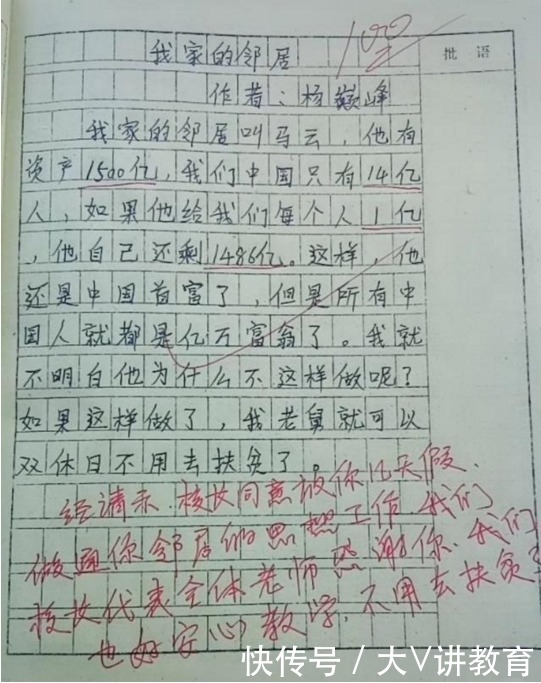 100
批语
我家的邻居
作者:杨巅峰
我家的邻居叫马云,他有
资产1500亿,我们中国只有14亿
人,如果他给我们每个人1亿
,他自己还剩1486亿。这样,他
还是中国首富了,但是所有中
国人就都是亿万富翁了。我就
不明白他为什么不这样做呢?
如果这样做了,我老舅就可以
双休日不用去扶贫了。
经请示、校长同意放你几天假、
做通你邻居的思想工作、我们
校长代表全体老师感谢你、我们
也好安心教学,不用去扶贫了
快传号/大V讲教育